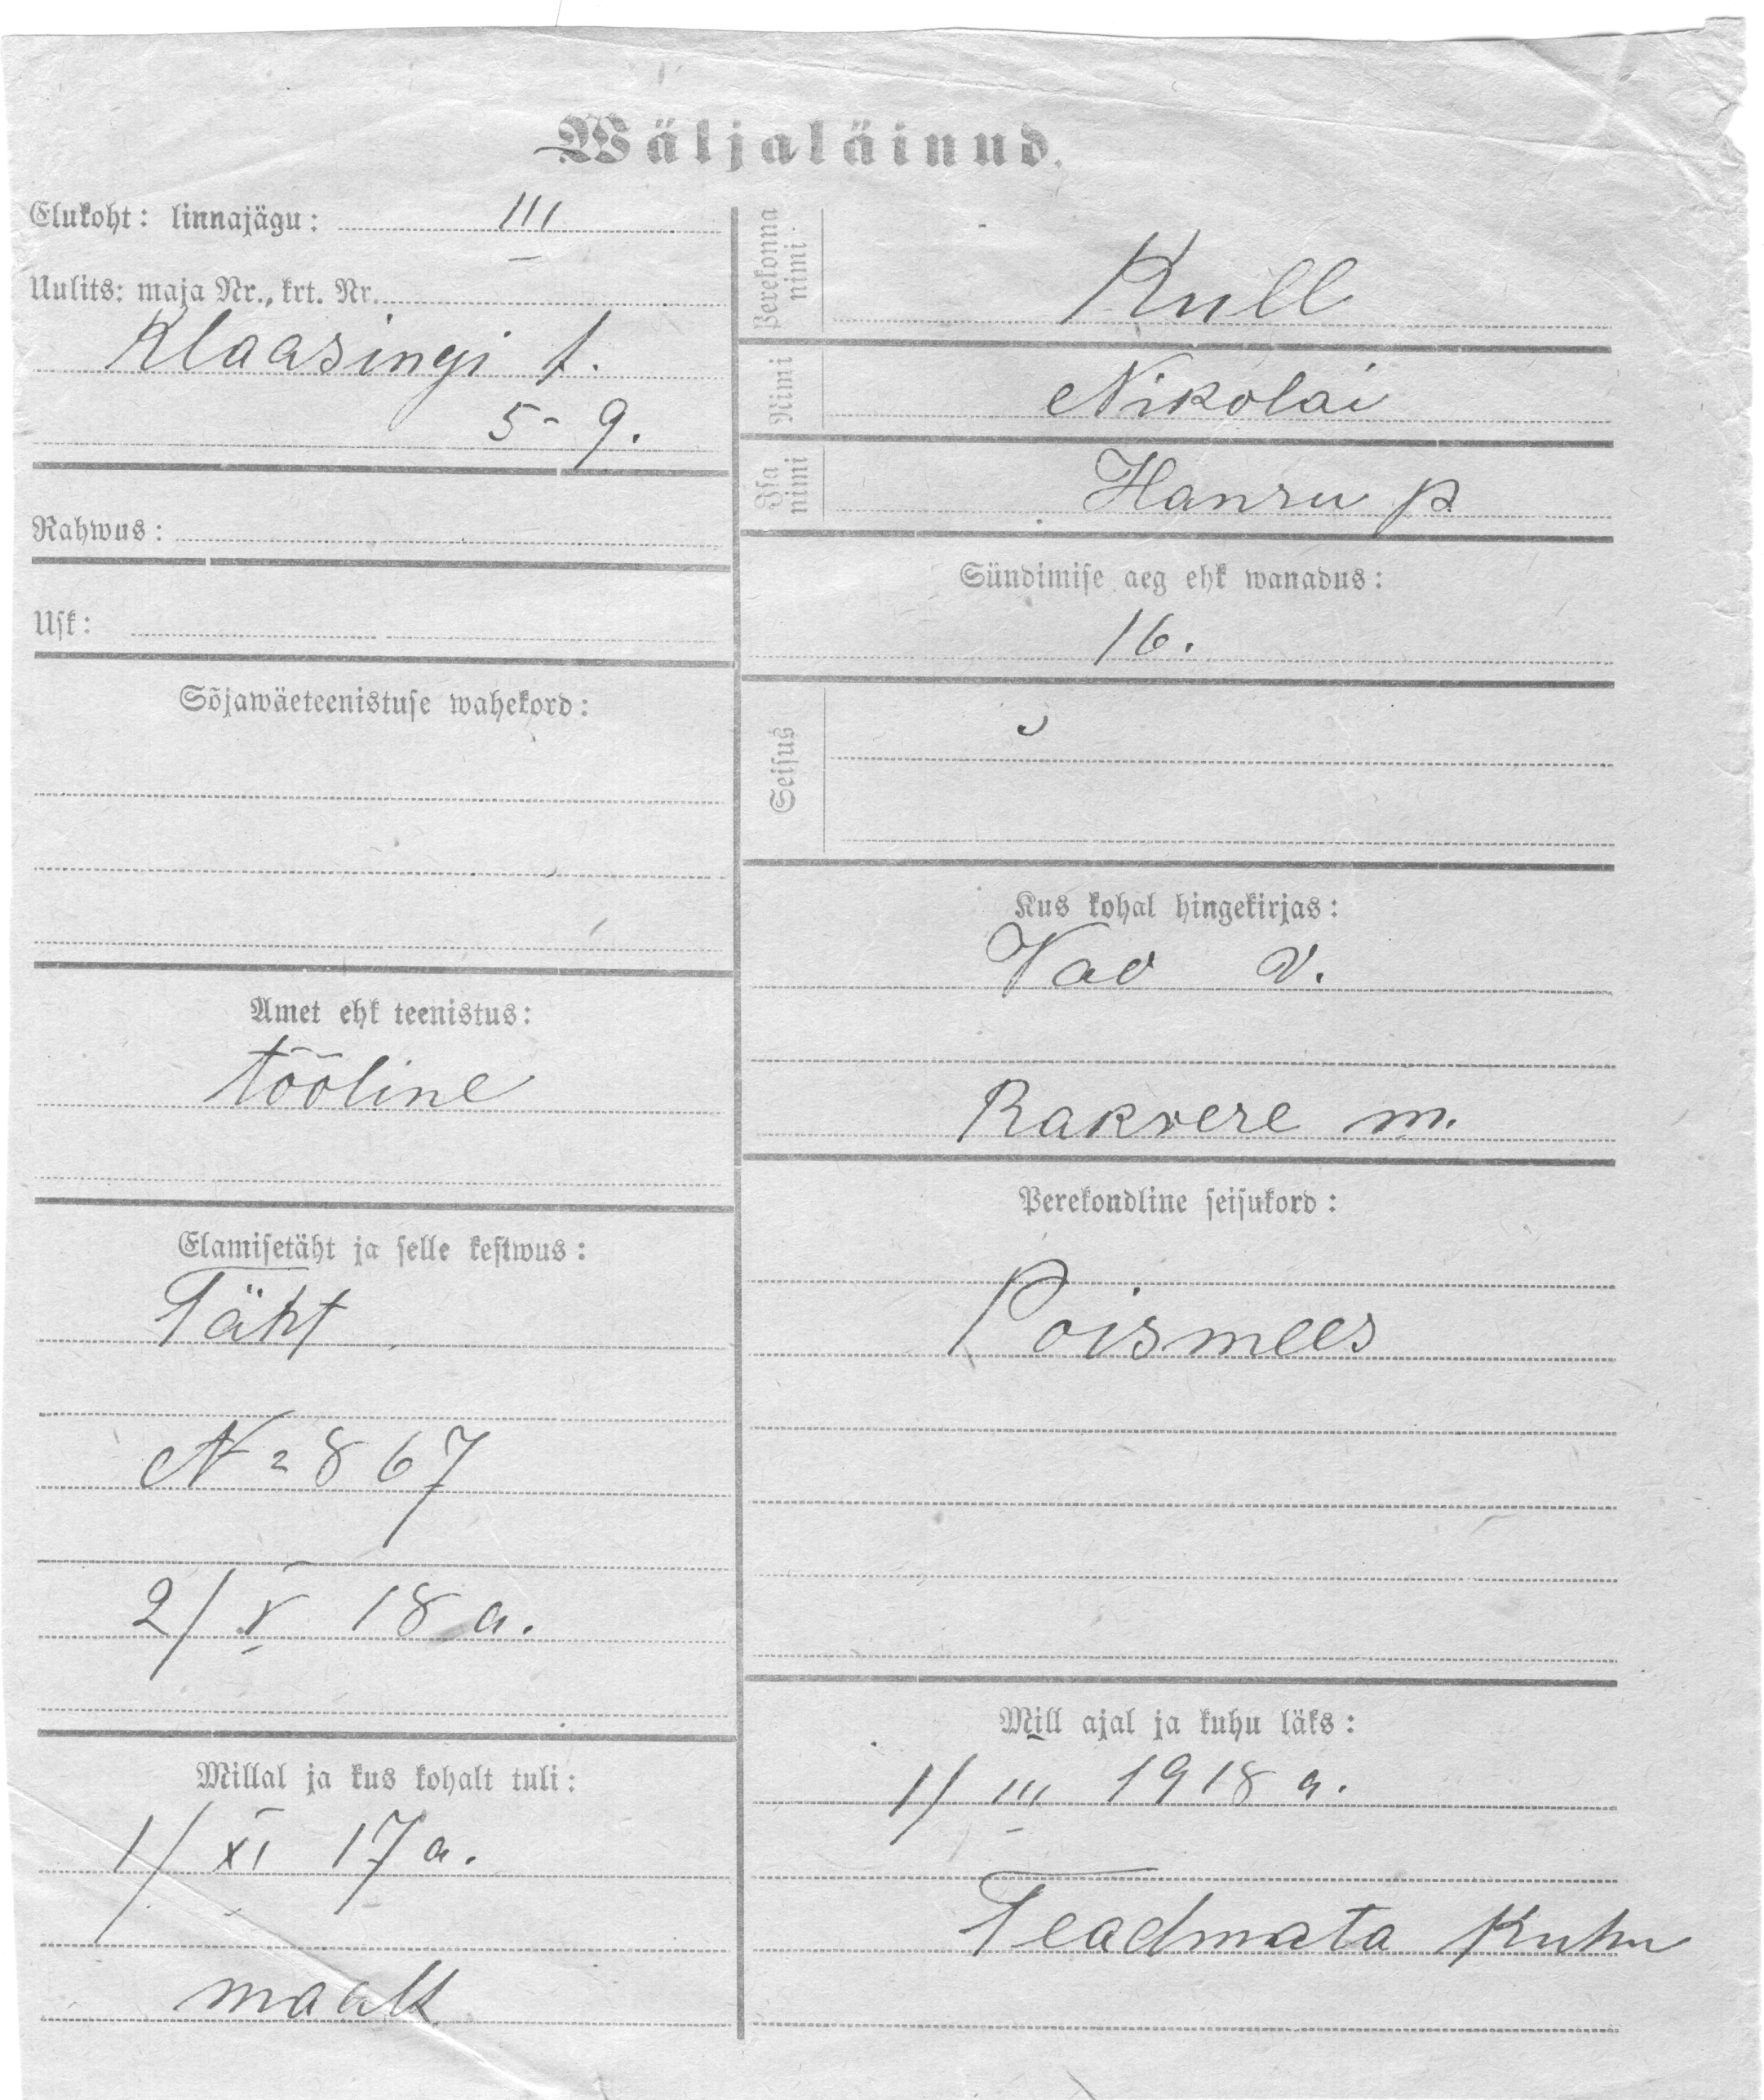 Wäljaläinud.
Elukoht: linnajägu: III
Uulits: maja Nr., krt. Nr.
Klaasingi t.
5-9.
Rahwus:
Usk:
Sõjawäeteenistuse wahekord:
Amet ehk teenistus:
tööline
Elamisetäht ja selle kestwus:
Täht
N=867
2/V 18 a.
Millal ja kus kohalt tuli:
1/XI 17 a.
maalt
Perekonna nimi
Kull
Nimi
Nikolai
Isa nimi
Hansu p.
Sündimise aeg ehk wanadus:
16.
Seisus
Kus kohal hingekirjas:
Vao v.
Rakvere m.
Perekondline seisukord:
Poismees
Mill ajal ja kuhu läks:
1/III 1918 a.
Teadmata Kuhu